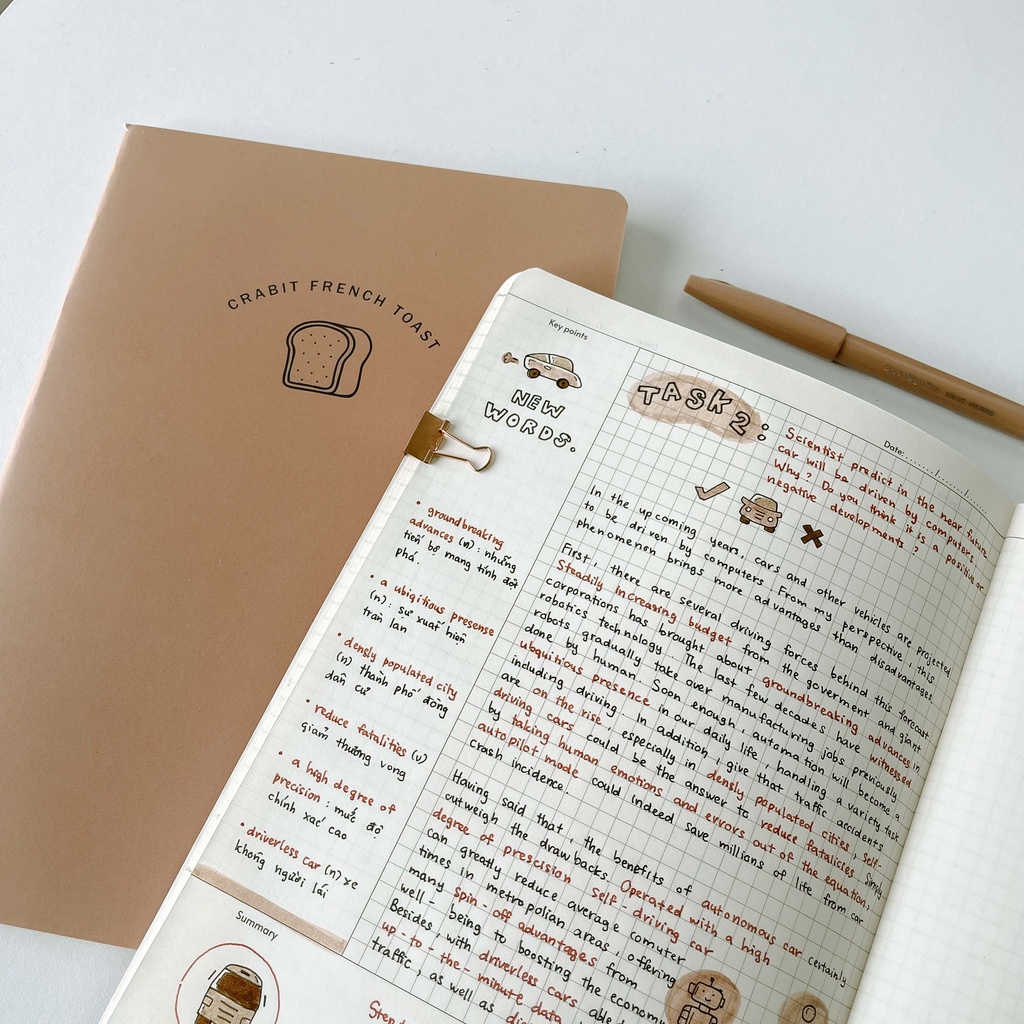 CRABIT FRENCH TOAST
Key points
NEW
WORDS.
• groundbreaking
advances (n): những
tiến bộ mang tính đột
phá.
• a ubiqitious presense
(n): sự xuất hiện
tràn lan
• densly populated city
(n) thành phố đông
dân cư
• reduce fatalities (v)
giảm thương vong
• a high degree of
precision: mức độ
chính xác cao
• driverless car (n) xe
không người lái
Summary
TASK 2:
Date: ....../....../......
Scientist predict in the near future
car will be driven by computers.
Why? Do you think it is a positive or
negative developments?
In the upcoming years, cars and other vehicles are projected
to be driven by computers. From my perspective, this
phenomenon brings more advantages than disadvantages.
First, there are several driving forces behind this forecast
Steadily increasing budget from the goverment and giant
corporations has brought about groundbreaking advances in
robotics technology. The last few decades have witnessed
robots gradually take over manufacturing jobs previously
done by human. Soon enough, automation will become a
ubiquitious presence in our daily life, handling a variety task
including driving. In addition, give that traffic accidents
are on the rise, especially in densly populated cities, self-
driving cars could be the answer to reduce fatalicies. Simply
by taking human emotions and errors out of the equation,
autopilot mode could indeed save millions of life from car
crash incidence.
Having said that, the benefits of autonomous car certainly
outweigh the drawbacks. Operated with a high
degree of prescision self-driving car
can greatly reduce average comuter
times in metropolian areas, offering
many spin-off advantages from
well-being to boosting the economy
Besides, with driverless cars able
up-to-the-minute data
traffic, as well as